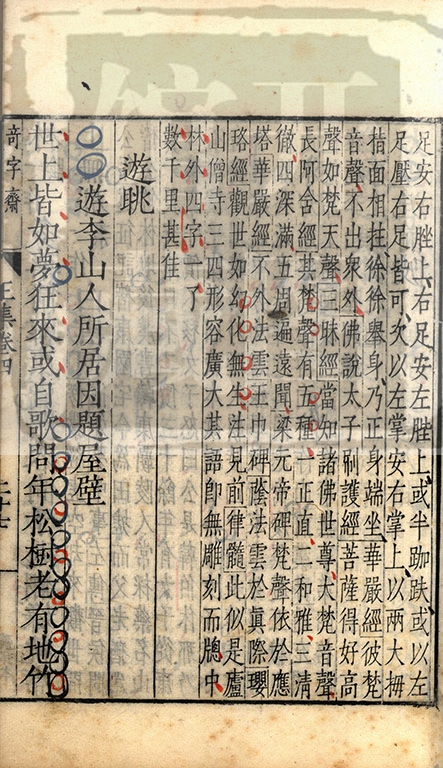 足安右䏶上右足安左䏶上或半跏趺或以左
足壓右足皆可次以左掌安右掌上以兩大拇
指面相拄徐徐舉身乃正身端坐華嚴經彼梵
音聲不出衆外佛說太子刷護經菩薩得好高
聲如梵天聲三昧經當知諸佛世尊大梵音聲
長阿含經其梵聲有五種一正直二和雅三清
徹四深滿五周遍遠聞梁元帝碑梵聲依於應
塔華嚴經不外法雲王巾碑蔭法雲於眞際瓔
珞經觀世如幻化無生法見前律髓此似是廬
山僧寺三四形容廣大其語卽無雕刻而牕中
林外四字一了
數千里甚佳
遊眺
遊李山人所居因題屋壁
世上皆如夢狂來或自歌問年松樹老有地竹
奇字齋
王集卷四
二十七